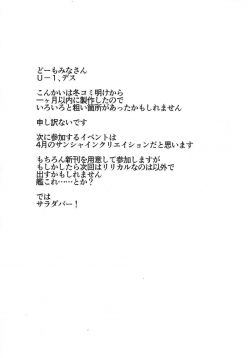 どーもみなさん
U-1、デス
こんかいは冬コミ明けから
一ヶ月以内に製作したので
いろいろと粗い箇所があったかもしれません
申し訳ないです
次に参加するイベントは
4月のサンシャインクリエイションだと思います
もちろん新刊を用意して参加しますが
もしかしたら次回はリリカルなのは以外で
出すかもしれません
艦これ……とか?
では
サラダバー!